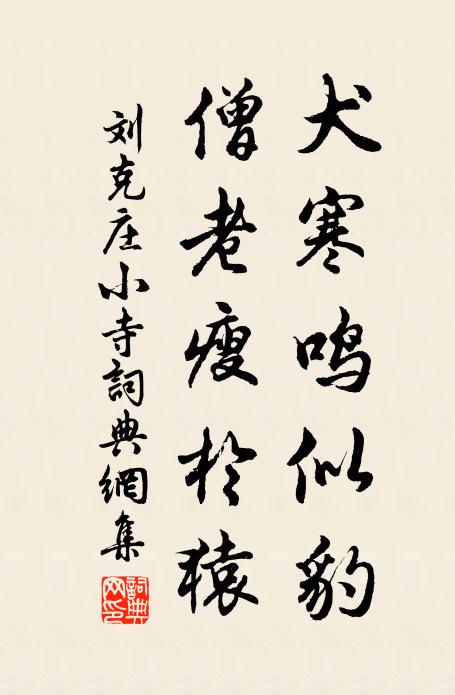 犬寒鸣似豹
僧老瘦於猿
刘克庄小寺詞典網集
詞典网印